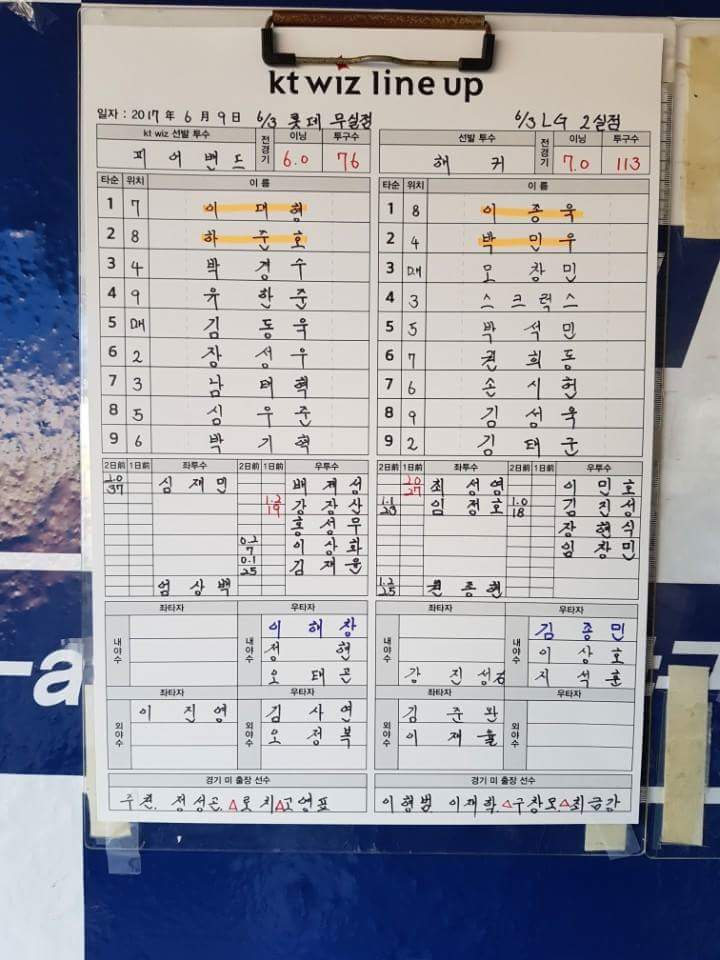 kt wiz line up
일자 : 2017 년 6 월 9 일 6/3 롯데 무실점 6/3 LG 2실점
kt wiz 선발 투수 전경기 이닝 투구수 선발 투수 전경기 이닝 투구수
피어밴드 6.0 76 해커 7.0 113
타순 위치 이 름 타순 위치 이 름
1 7 이대형 1 8 이종욱
2 8 하준호 2 4 박민우
3 4 박경수 3 DH 모창민
4 9 유한준 4 3 스크럭스
5 DH 김동욱 5 5 박석민
6 2 장성우 6 7 권희동
7 3 남태혁 7 6 손시헌
8 5 심우준 8 9 김성욱
9 6 박기혁 9 2 김태군
2日前 1日前 좌투수 2日前 1日前 우투수 2日前 1日前 좌투수 2日前 1日前 우투수
2.0 37 심재민 배제성 2.0 27 최성영 이민호
1.2 19 강장산 1.1 23 임정호 1.0 18 김진성
홍성무 장현식
0.2 7 이상화 임창민
0.1 25 김재윤
엄상백 1.2 25 원종현
좌타자 우타자 좌타자 우타자
내야수 이해창 내야수 김종민
정현 이상호
오태곤 강진성 지석훈
좌타자 우타자 좌타자 우타자
외야수 이진영 김사연 외야수 김준완
오정복 이재율
경기 미 출장 선수 경기 미 출장 선수
주권. 정성곤 △로치△고영표 이형범 이재학. △구창모△최금강